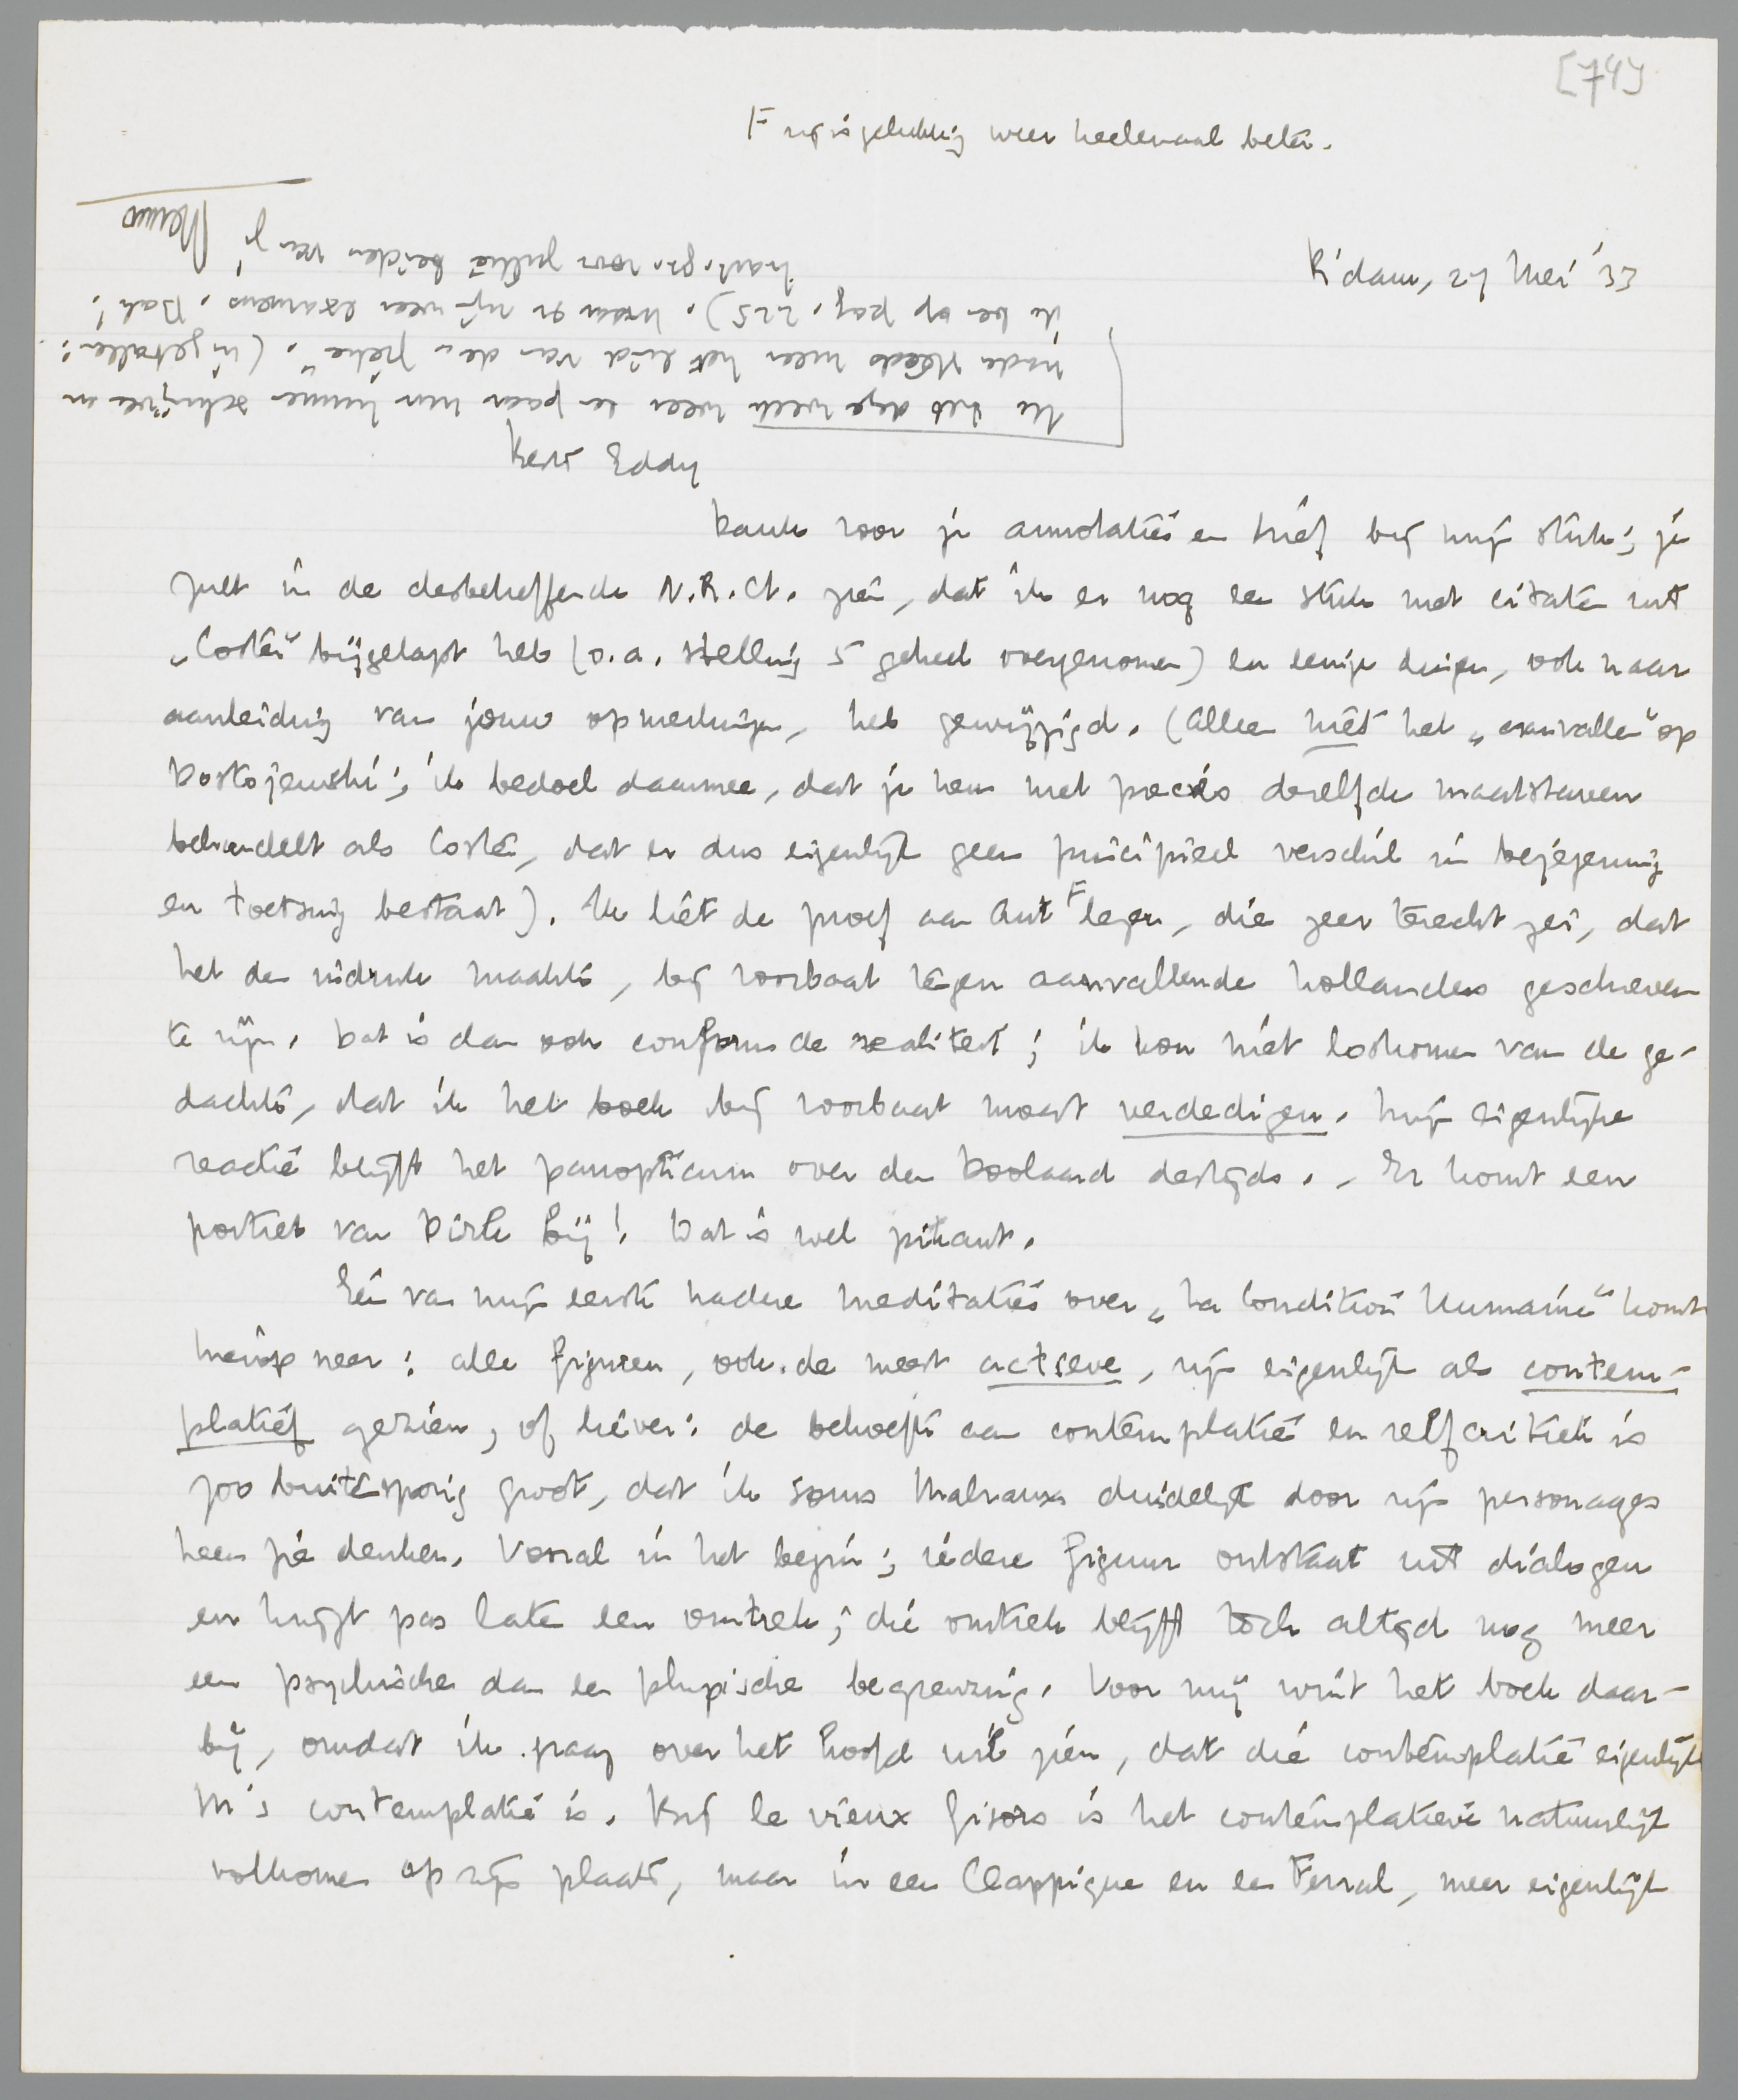 [74]
F nu is gelukkig weer heelemaal beter.
R'dam, 27 Mei '33
Best Eddy
Dank voor je annotaties en brief bij mijn stuk; je
zult in de desbetreffende N.R.Ct. zien, dat ik er nog een stuk met citaten uit
„Coster" bijgelapt heb (o.a. stelling 5 geheel overgenomen) en eenige dingen, ook naar
aanleiding van jouw opmerkingen, heb gewijzigd. (Alleen niet het „aanvallen" op
Dostojewski; ik bedoel daarmee, dat je hem met precies dezelfde maatstaven
behandelt als Coster, dat er dus eigenlijk geen principieel verschil in bejegening
en toetsing bestaat). Ik liet de proef aan Ant F lezen, die zeer terecht zei, dat
het den indruk maakte, bij voorbaat tegen aanvallende hollanders geschreven
te zijn. Dat is dan ook conform de realiteit; ik kon niet loskomen van de ge-
dachte, dat ik het boek bij voorbaat moest verdedigen. Mijn eigenlijke
reactie blijft het panopticum over den Doolaard destijds. - Er komt een
portret van Dirk bij! Dat is wel pikant.
Eén van mijn eerste nadere meditaties over „La Condition Humaine" komt
hierop neer: alle figuren, ook de meest actieve, zijn eigenlijk als contem-
platief gezien, of liever: de behoefte aan contemplatie en zelfcritiek is
zoo buitensporig groot, dat ik soms Malraux duidelijk door zijn personages
heen zie denken. Vooral in het begin; iedere figuur ontstaat uit dialogen
en krijgt pas later een omtrek; die omtrek blijft toch altijd nog meer
een psychische dan een physische begrenzing. Voor mij wint het boek daar-
bij, omdat ik graag over het hoofd wil zien, dat die contemplatie eigenlijk
M's contemplatie is. Bij le vieux Gisors is het contemplatieve natuurlijk
volkomen op zijn plaats, maar in een Clappique en een Ferral, meer eigenlijk
Ik heb deze week weer een paar uur kunnen schrijven en
nader steeds meer het eind van de „piece". (Ingevallen:
ik ben op pag. 225). Maar er zijn weer examens. Bah!
hart. gr. voor jullie beiden van je
Menno